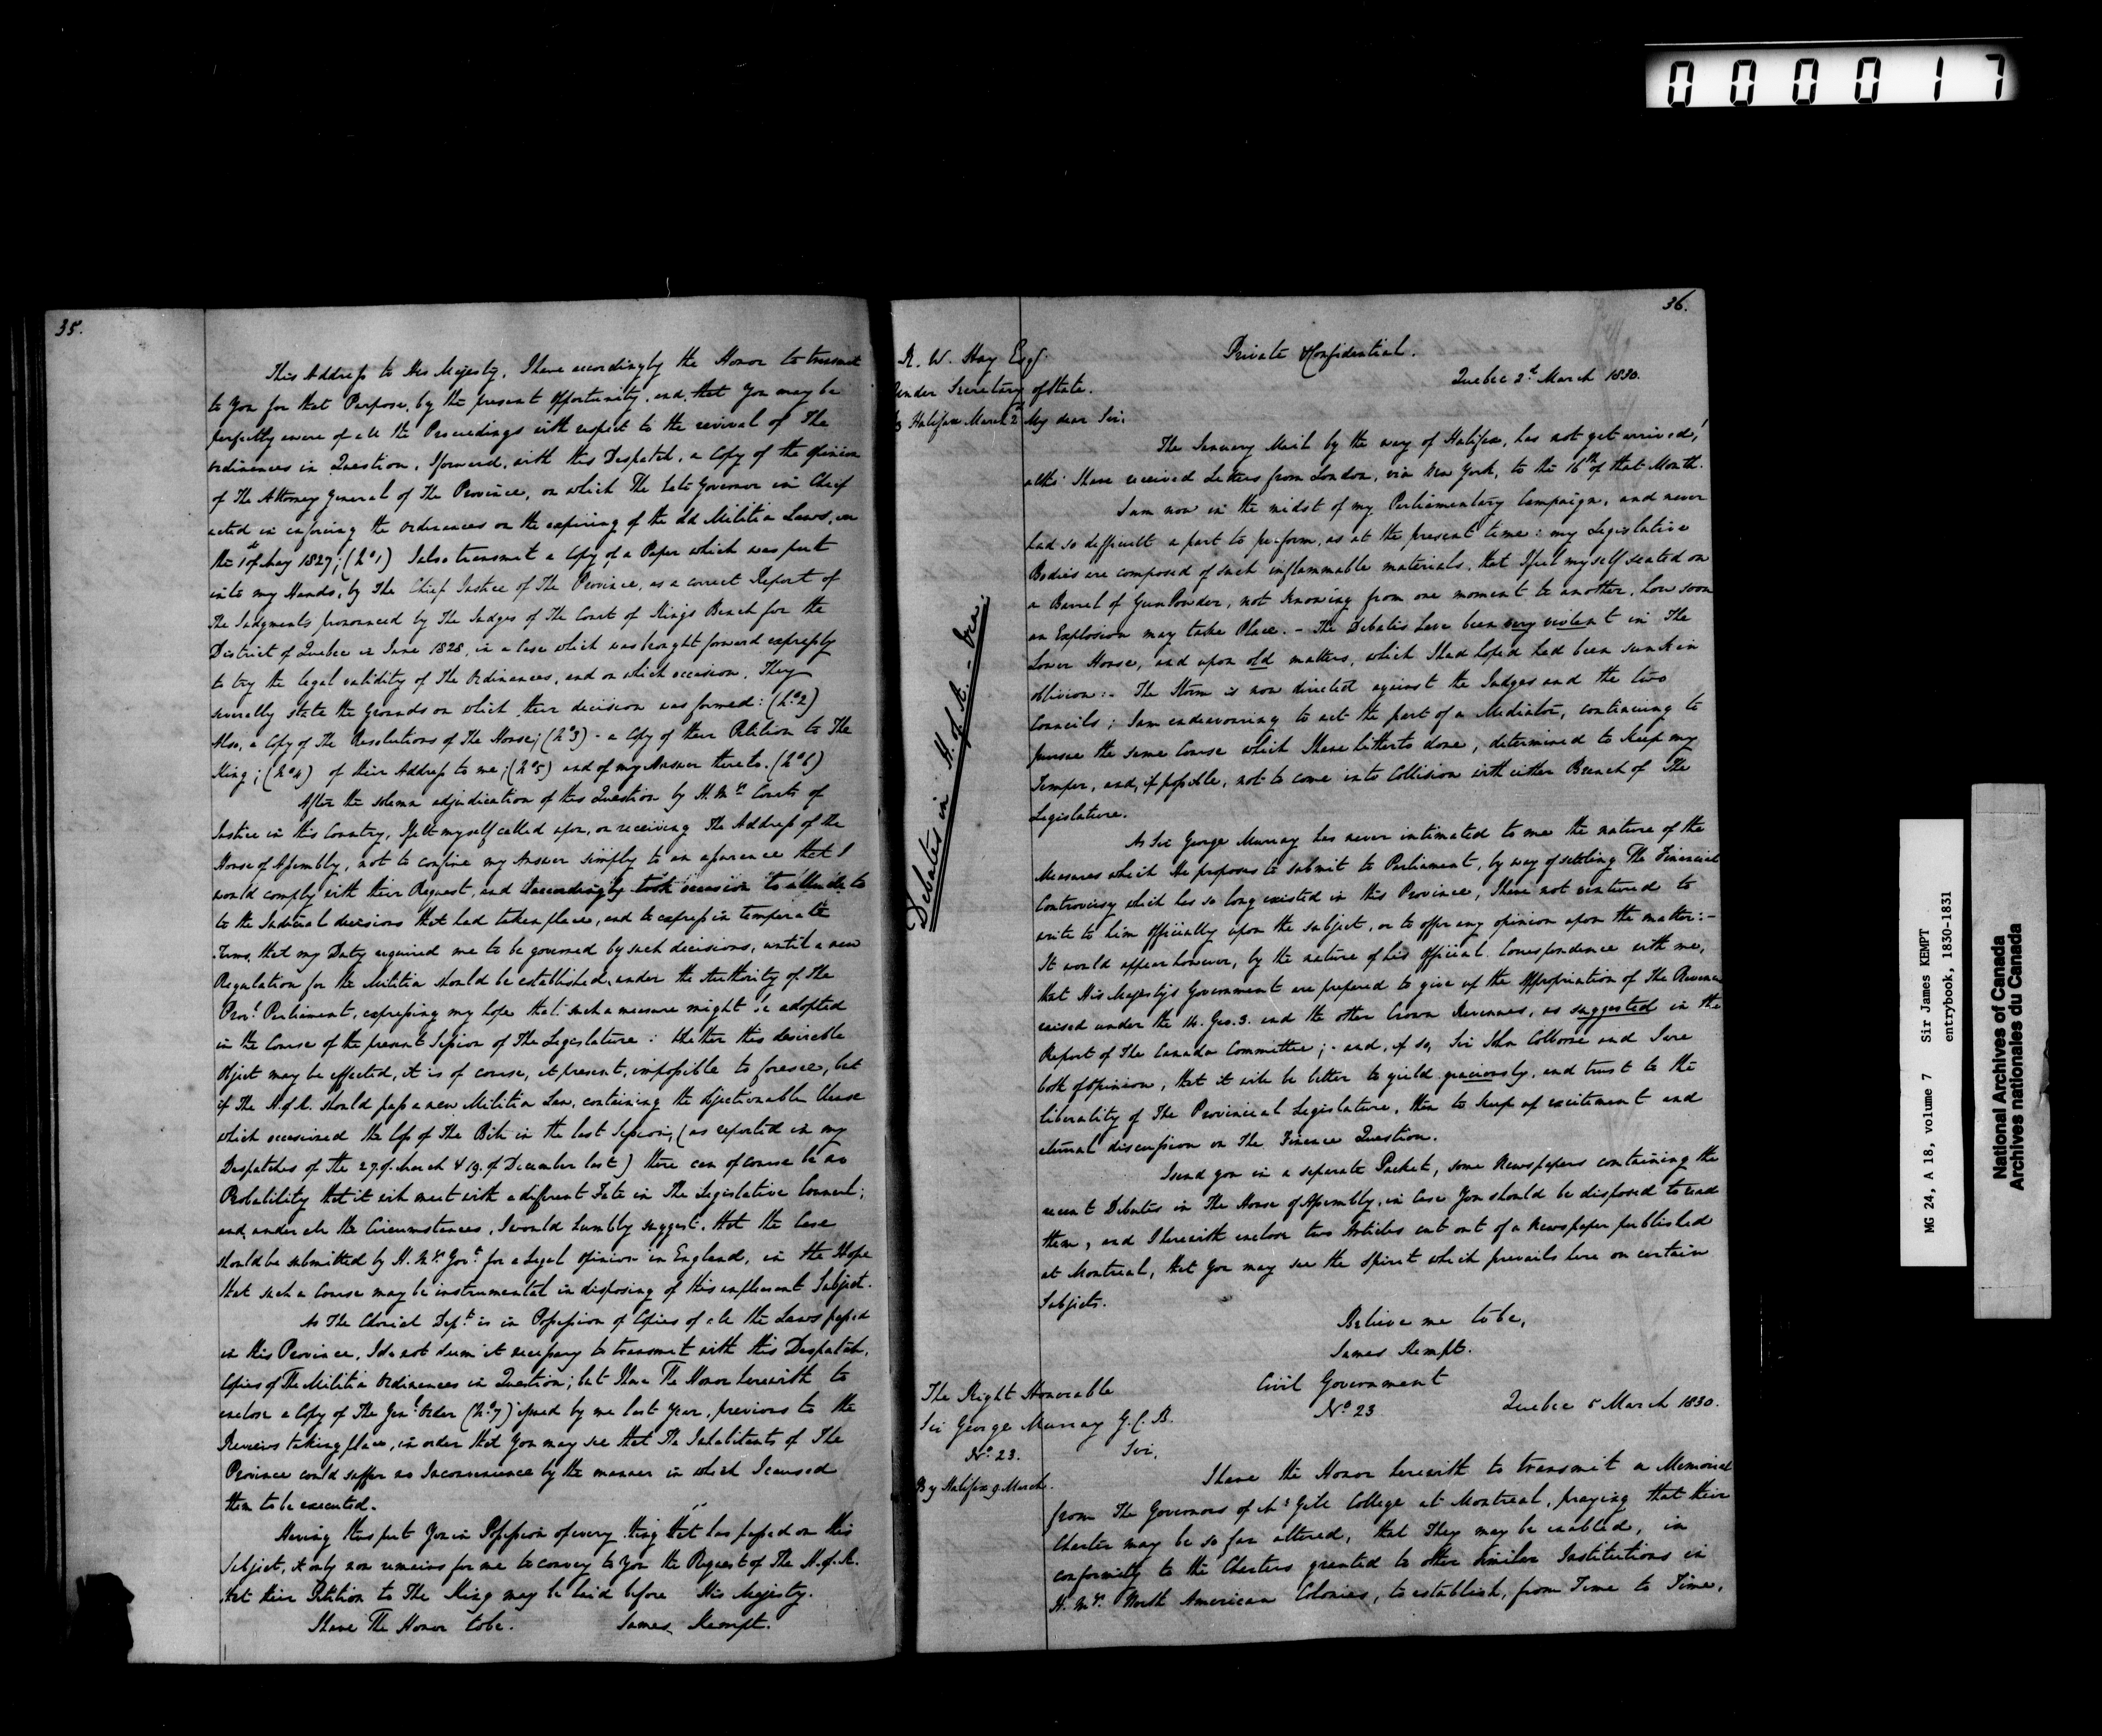 000017
35.
This Address to His Majesty, I have accordingly the Honor to transmit
to You for that Purpose, by the present opportunity, and, that You may be
perfectly aware of all the Proceedings with respect to the revival of The
Ordinances in Question, I forward, with this Despatch, a Copy of the opinion
of The Attorney General of The Province, on which The late Governor in Chief
acted in enforcing the Ordinances on the expiring of the old Militia Laws, on
the 1st of May 1827; (No 1) I also transmit a Copy of a Paper which was put
into my Hands, by The Chief Justice of The Province, as a correct Report of
The Judgments pronounced by The Judges of The Court of Kings Bench for the
District of Quebec in June 1828, in a Case which was brought forward expressly
to try the legal validity of The Ordinances, and on which occasion, They
severally state the Grounds on which their decision was formed: (No 2)
Also, a Copy of The Resolutions of The House; (No 3) - a Copy of their Petition to The
King; (No 4) of their Address to me; (No 5) and of my Answer thereto. (No 6)
After the solemn adjudication of this Question by H. My's Courts of
Justice in this Country, I felt myself called upon, on receiving The Address of the
House of Assembly, not to confine my Answer simply to an assurance that I
would comply with their Request, and I accordingly took occasion to allude to
to the Judicial decisions that had taken place, and to express in temperate
Terms, that my Duty required me to be governed by such decisions, until a new
Regulation for the Militia should be established, under the Authority of The
Prov'l Parliament, expressing my hope that such a measure might be adopted
in the Course of the present Session of The Legislature: Whether this desirable
Object may be effected, it is of course, at present, impossible to foresee, but
if The H. of A. should pass a new Militia Law, containing the objectionable Clause
which occasioned the loss of The Bill in the last Session, (as reported in my
Despatches of the 27. of March & 19. of December last) there can of course be no
Probability that it will meet with a different Fate in The Legislative Council;
and, under all the Circumstances, I would humbly suggest, that the Case
should be submitted by H. My's Govt for a Legal opinion in England, in the Hope
that such a Course may be instrumental in disposing of this unpleasant Subject.
As The Colonial Dept is in Possession of Copies of all the Laws passed
in this Province, I do not deem it necessary to transmit with this Despatch,
Copies of The Militia Ordinances in Question; but I have The Honor herewith to
enclose a Copy of The Genl Order (No 7) issued by me last Year, previous to the
Reviews taking place, in order that You may see that The Inhabitants of The
Province could suffer no Inconvenience by the manner in which I caused
them to be executed.
Having thus put You in Possession of every thing that has passed on this
Subject, it only now remains for me to convey to You the Request of The H. of A.
that their Petition to The King may be laid before His Majesty.
I have The Honor to be. James Kempt.
36.
R. W. Hay Esqr
Under Secretary of State.
By Halifax March 2d
Private & Confidential.
Quebec 2d March 1830.
My dear Sir,
The January Mail by the way of Halifax, has not yet arrived,
altho' I have received Letters from London, via New York, to the 16th of that Month.
I am now in the midst of my Parliamentary Campaign, and never
had so difficult a part to perform, as at the present time: my Legislative
Bodies are composed of such inflammable materials, that I feel myself seated on
a Barrel of Gun Powder, not knowing from one moment to another, how soon
an Explosion may take Place. - The Debates have been very violent in The
Lower House, and upon old matters, which I had hoped had been sunk in
oblivion: - The Storm is now directed against the Judges and the two
Councils; I am endeavouring to act the part of a Mediator, continuing to
pursue the same Course which I have hitherto done, determined to keep my
Temper, and, if possible, not to come into Collision with either Branch of The
Legislature.
Debates in H. of A. -
As Sir George Murray has never intimated to me the nature of the
Measures which He proposes to submit to Parliament, by way of settling The Financial
Controversy which has so long existed in this Province, I have not ventured to
write to him officially upon the subject, or to offer any opinion upon the matter: -
It would appear however, by the nature of his official Correspondence with me,
that His Majesty's Government are prepared to give up the Appropriation of The Revenue
raised under the 14. Geo. 3. and the other Crown Revenues, as suggested in the
Report of The Canada Committee; - and, if so, Sir John Colborne and I are
both of opinion, that it will be better to yield graciously, and trust to the
liberality of The Provincial Legislature, than to keep up excitement and
eternal discussion on The Finance Question.
I send you in a separate Packet, some Newspapers containing the
recent Debates in The House of Assembly, in Case You should be disposed to read
them, and I herewith enclose two Articles cut out of a Newspaper published
at Montreal, that You may see the Spirit which prevails here on certain
Subjects.
Believe me to be,
James Kempt.
The Right Honorable
Sir George Murray G.C.B.
No 23.
By Halifax 9 March.
Civil Government
No 23
Quebec 5 March 1830.
Sir,
I have the Honor herewith to transmit a Memorial
from The Governors of Mc Gill College at Montreal, praying that their
Charter may be so far altered, that They may be enabled, in
conformity to the Charters granted to other similar Institutions in
H. My's North American Colonies, to establish, from Time to Time,
MG 24, A 18, volume 7 Sir James KEMPT
entrybook, 1830-1831
National Archives of Canada
Archives nationales du Canada